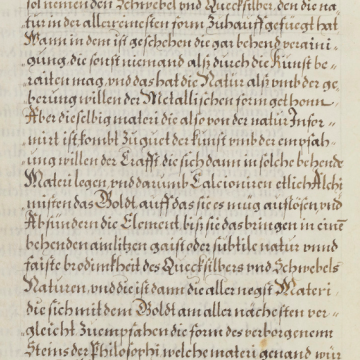 sol nemen den Schwebel vnd Quecksilber, den die na„
tur in der allerreinesten form Zuhauff gefüegt hat
Wann in dem ist geschehen die gar behend veraini„
gung, die sonst niemand alß durch die Kunst be„
raiten mag, vnd das hat die Natur alß vmb der ge„
berung willen der Metallischen form gethonn.
Aber dieselbig materi die also von der natur Infor„
mirt ist kombt Zuguet der kunst vmb der empfah„
ung willen der Crafft die sich dann in solche behende
Materi legen, vnd darumb Calcioniren etlich Alchi
misten das Goldt auff das sie es müg auflösen, vnd
Absündern die Element, biß sie das bringen in eine
behenden ainlitzen gaist oder subtile natur vnnd
faiste brodimkheit des Quecksilbers vnd Schwebels
Naturen, vnd die ist dann die aller negst Materi„
die sich mit dem Goldt am aller nächesten ver„
gleicht Zuempfahen die form des verborgenenn
Steins der Philosophi, welche materi genand wür